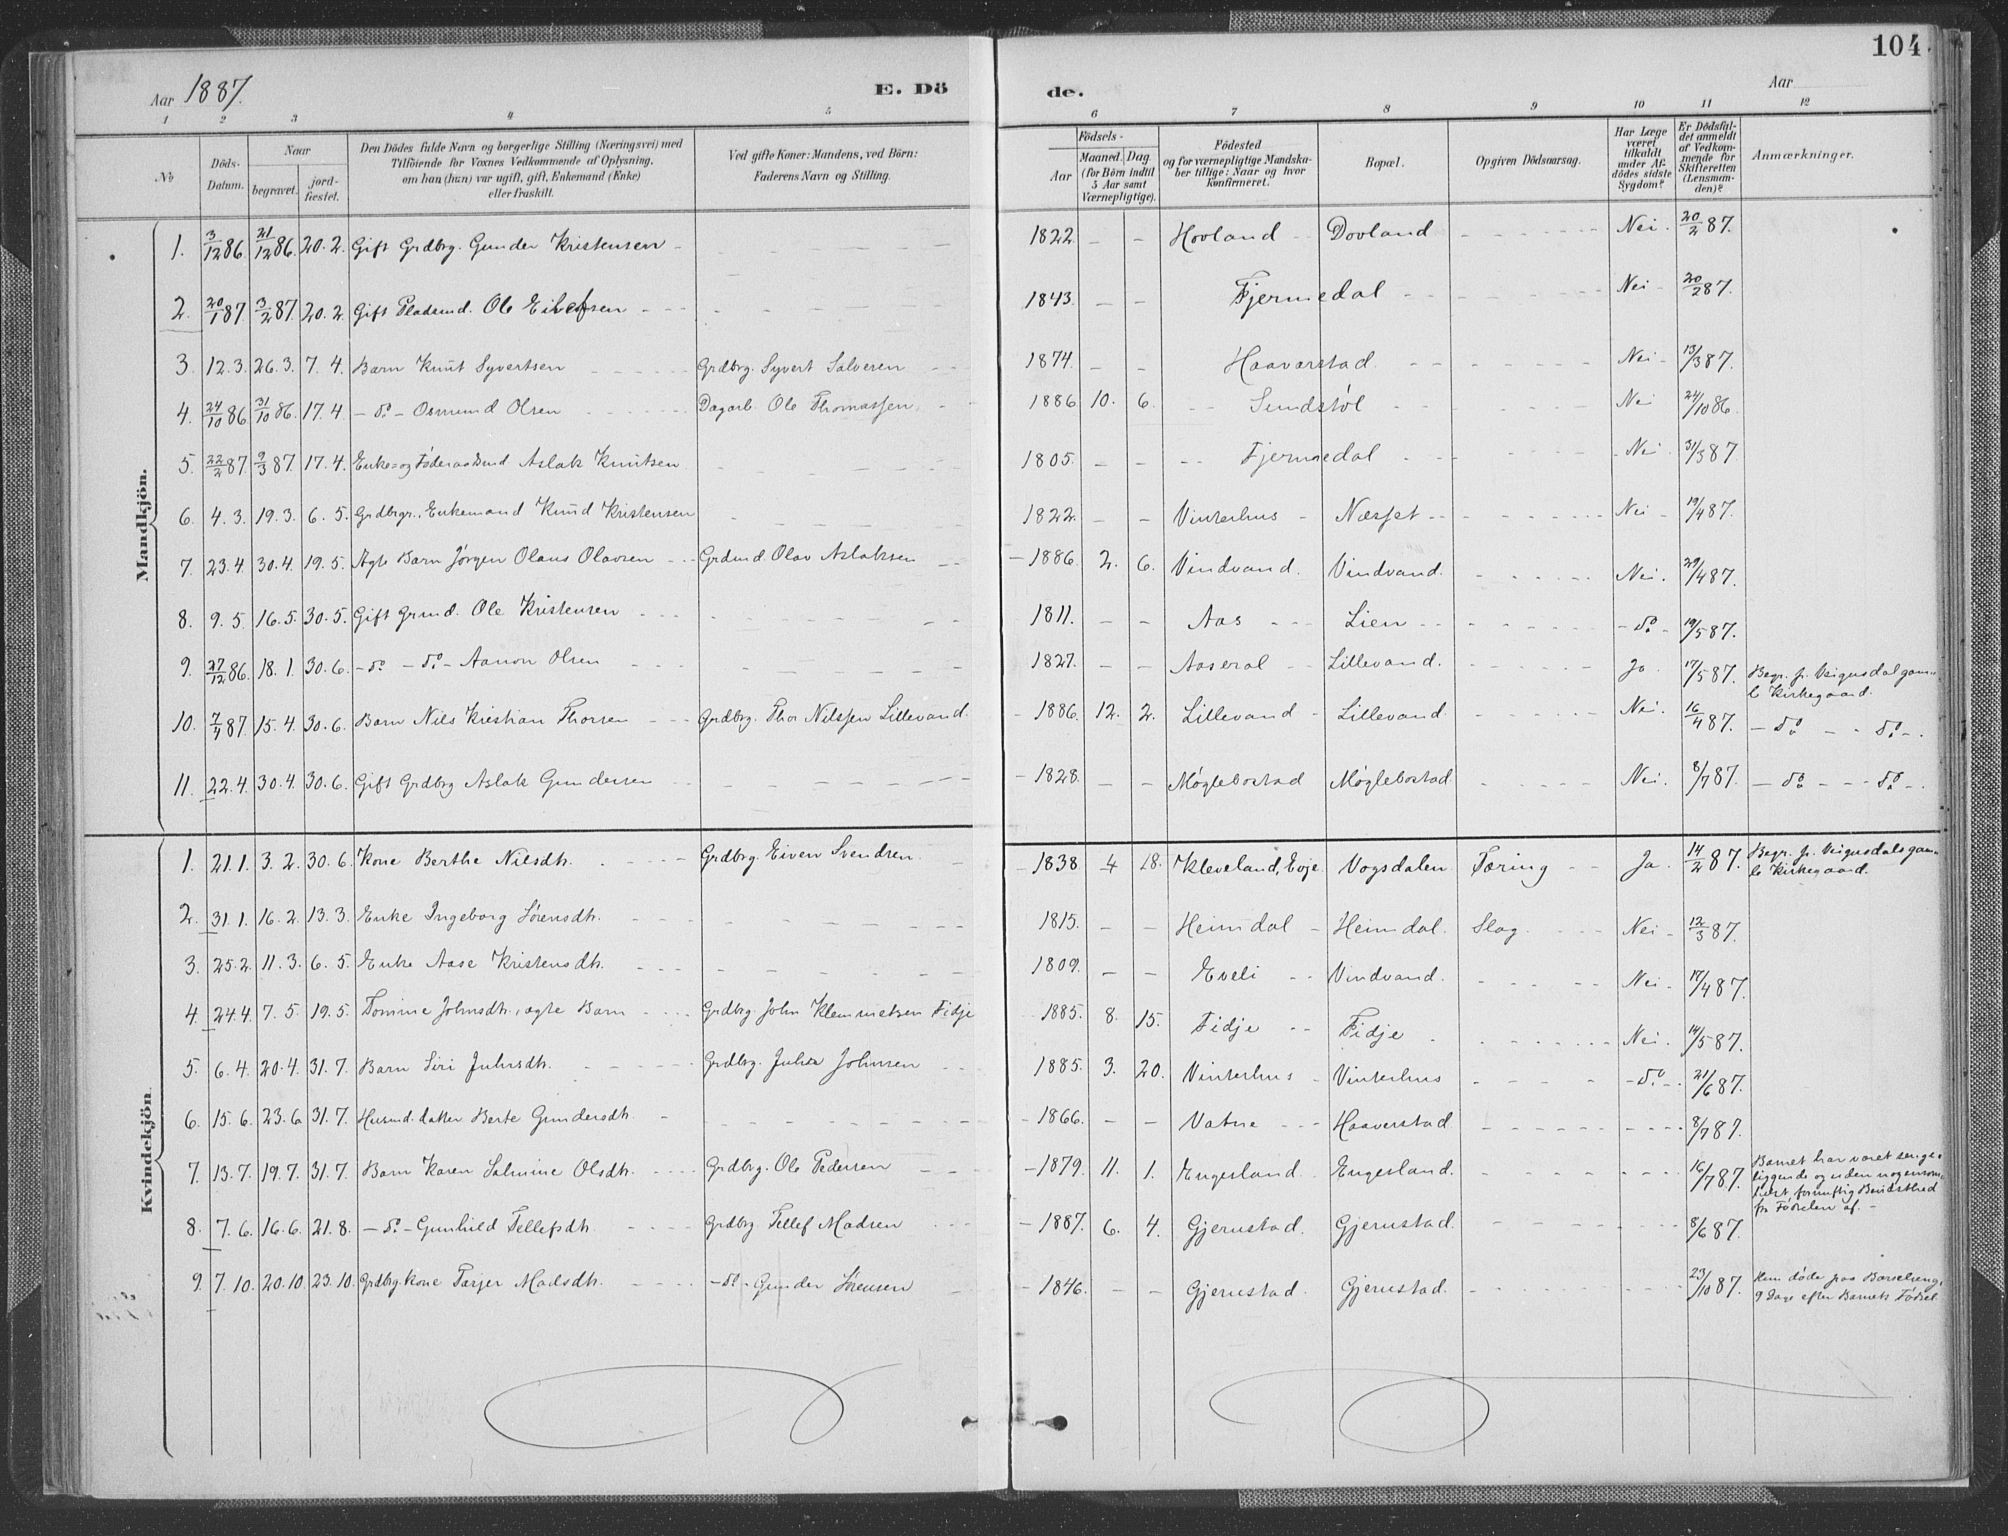 104
Aar 1887. E. Dö de. Aar
1 2 3 4 5 6 7 8 9 10 11 12
No
Döds-Datum.
Naar
begravet.
jord-fæstet.
Den Dödes fulde Navn og borgerlige Stilling (Næringsvei) med
Tilföiende for Voxnes Vedkommende af Oplysning,
om han (hun) var ugift, gift, Enkemand (Enke)
eller fraskilt.
Ved gifte Koner: Mandens, ved Börn:
Faderens Navn og Stilling.
Födsels-
Aar
Maaned. Dag
(for Börn indtil
5 Aar samt
Værnepligtige).
Födested
og for værnepligtige Mandska-
ber tillige: Naar og hvor
konfirmeret.
Bopæl.
Opgiven Dödsaarsag.
Har Læge
været
tilkaldt
under Af-
dödes sidste
Sygdom?
Er Dödsfal-
det anmeldt
af Vedkom-
mende for
Skifteretten
(Lensman-
den)?
Anmærkninger.
Mandkjön.
1. 3/12 86 21/12 86. 20. 2. Gift Grdbrg. Gunder Kristensen 1822 Hovland Dovland Nei. 20/2 87.
2. 20/1 87 3/2 87. 20. 2. Gift Pladsmd. Ole Eilefsen 1843. Fjermedal Nei 20/2 87.
3. 12. 3. 26. 3. 7. 4. Barn Knut Syvertsen Grdbrg. Syvert Salvesen 1874. Haaverstad Nei 13/3 87.
4. 24/10 86 31/10 86. 17. 4 do Osmund Olsen Dagarb. Ole Thomassen 1886 10. 6. Sundstøl Nei 24/10 86.
5. 22/2 87 9/3 87. 17. 4. Enke- og Føderaadsmd Aslak Knutsen 1805. Fjermedal Nei 31/3 87
6. 4. 3. 19. 3. 6. 5. Grdbrgr. Enkemand Knud Kristensen 1822. Vinterhus Næsset Nei 19/4 87.
7. 23. 4. 30. 4. 19. 5. Ægte Barn Jørgen Olaus Olavsen Grdmd. Olav Aslaksen 1886. 2. 6. Vindvand. Vindvand. Nei. 29/4 87.
8. 9. 5. 16. 5. 30. 5. Gift Grmd. Ole Kristensen 1811. Aas Lien do 19/5 87.
9. 27/12 86. 18. 1. 30. 6. do do Aanon Olsen 1827. Aaseral Lillevand. Ja. 17/5 87. Begr. p. Veigusdal gam-
le Kirkegaard.
10. 7/4 87. 15. 4. 30. 6. Barn Nils Kristian Thorsen Grdbrg. Thor Nilssen Lillevand. 1886. 12. 2. Lillevand Lillevand Nei. 16/4 87. do do
11. 22. 4. 30. 4. 30. 6. Gift Grdbrg Aslak Gundersen 1828. Møglebostad Møglebostad Nei. 8/7 87. do do
Kvindekjön.
1. 21. 1. 3. 2. 30. 6. Kone Berthe Nilsdtr. Grdbrg. Eiven Svendsen 1838 4 18. Kleveland, Evje Vogsdalen Tæring Ja. 14/2 87. Begr. p. Veigusdals gam-
le Kirkegaard.
2. 31. 1. 16. 2. 13. 3. Enke Ingeborg Sörensdtr. 1815. Heimdal Heimdal. Slag. Nei 12/3 87.
3. 25. 2. 11. 3. 6. 5. Enke Aase Kristensdtr. 1809. Eveli Vindvand. Nei 17/4 87.
4. 24. 4. 7. 5. 19. 5. Tomine Johnsdtr., ægte Barn Grdbrg. John Klemmetsen Fidje 1885. 8. 15. Fidje Fidje Nei. 14/5 87.
5. 6. 4. 20. 4. 31. 7. Barn Siri Juhrsdtr. Grdbrg. Johnsen 1885. 3. 20. Vinterhus Vinterhus do 21/6 87.
6. 15. 6. 23. 6 31. 7. Husmd. datter Berte Gundersdtr. 1866. Vatne Haaverstad 8/7 87.
7. 13. 7. 19. 7. 31. 7. Barn Karen Salmine Olsdtr. Grdbrg. Ole Pedersen 1879. 11. 1. Engesland. Engesland. 16/7 87. Barnet har været senge-
liggende og uden nogensom-
helst fornuftig Bevidsthed
fra Fødselen af.
8. 7. 6. 16. 6. 21. 8. do Gunhild Tellefsdtr. Grdbrg Tellef Madsen 1887. 6. 4. Gjerustad. Gjerustad. 8/6 87.
9. 7. 10. 20. 10. 23. 10. Grdbrg. kone Tarjer Madsdtr. do Gunder Sörensen 1846. Gjerustad. Gjerustad. 23/10 87. Hun døde paa Barselseng,
9 Dage efter Barnets Fødsel